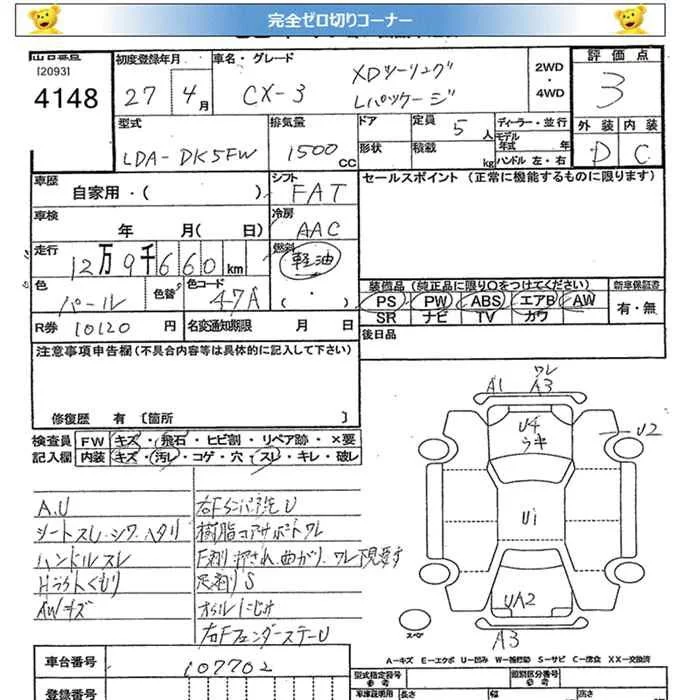 完全ゼロ切りコーナー
[2093]
4148
初度登録年月
27 4月
車名・グレード
CX-3
XDツーリング
Lパッケージ
2WD
・
4WD
評価点
3
外装 内装
D C
型式
LDA-DK5FW
排気量
1500 CC
ドア
定員 5 人
形状
積載 kg
ディーラー・並行
モデル
年式 年
ハンドル 左・右
車歴
自家用・( )
シフト
FAT
車検
年 月( 日)
冷房
AAC
走行
12万9千660km
燃料
軽油
( ・ )
色
パール
色替
色コード
47A
R券 10120 円
名変通知期限 月 日
セールスポイント(正常に機能するものに限ります)
装備品(純正品に限り○をつけてください)
PS PW ABS エアB AW
SR ナビ TV カワ
新車保証書
有・無
後日品
注意事項申告欄(不具合内容等は具体的に記入して下さい)
修復歴 有 [箇所 ]
検査員
記入欄
FW キズ・飛石・ヒビ割・リペア跡・×要
内装 キズ・汚レ・コゲ・穴・スレ・キレ・破レ
A.U
シートスレ・シワ・ヘタリ
ハンドルスレ
Hライトくもり
AWキズ
樹脂コアサポートワレ
F廻り押され、曲がり、ワレ下現要す
足廻りS
オイルにじみ
右FフェンダーステーU
A1
ワレ
A3
U4
ウキ
U2
U1
UA2
スペア
A3
A-キズ E-エクボ U-凹み W-補修跡 S-サビ C-腐食 XX-交換済
車台番号
107702
登録番号
型式指定番号
参考
類別区分番号
参考
車庫証明用
長さ
幅
高さ